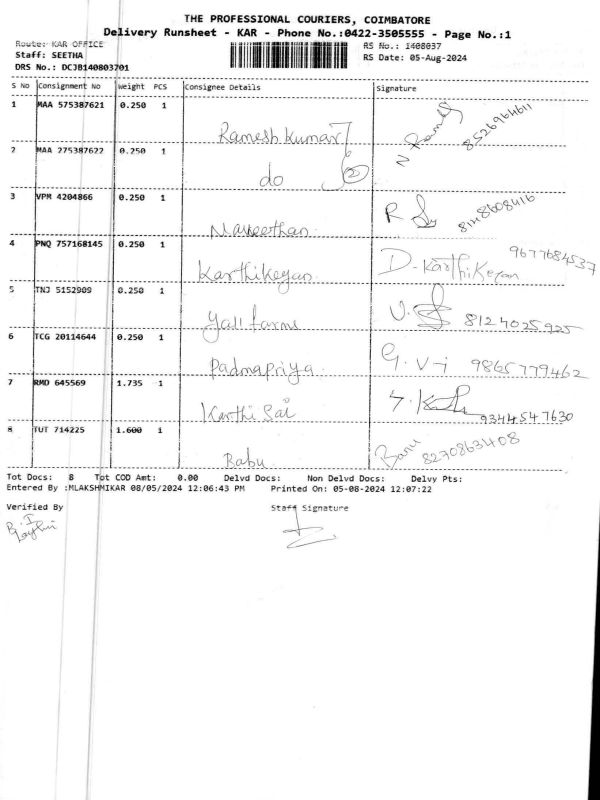 THE PROFESSIONAL COURIERS, COIMBATORE
Delivery Runsheet - KAR - Phone No.:0422-3505555 - Page No.:1
Route: KAR OFFICE RS No.: 1408037
Staff: SEETHA RS Date: 05-Aug-2024
DRS No.: DCJB140803701
S No Consignment No Weight PCS Consignee Details Signature
1 MAA 575387621 0.250 1 Ramesh Kumar 8526964611
2 MAA 275387622 0.250 1 do 2
3 VPM 4204866 0.250 1 Naveethan R
4 PNQ 757168145 0.250 1 Karthikeyan D. Karthikeyan 9677684537
5 TNJ 5152909 0.250 1 Yall farms 8124025925
6 TCG 20114644 0.250 1 Padmapriya G. V-i 9865779462
7 RMD 645569 1.735 1 Karthi Sai 9344547630
8 TUT 714225 1.600 1 Babu Banu 8270863408
Tot Docs: 8 Tot COD Amt: 0.00 Delvd Docs: Non Delvd Docs: Delvy Pts:
Entered By :MLAKSHMIKAR 08/05/2024 12:06:43 PM Printed On: 05-08-2024 12:07:22
Verified By Staff Signature